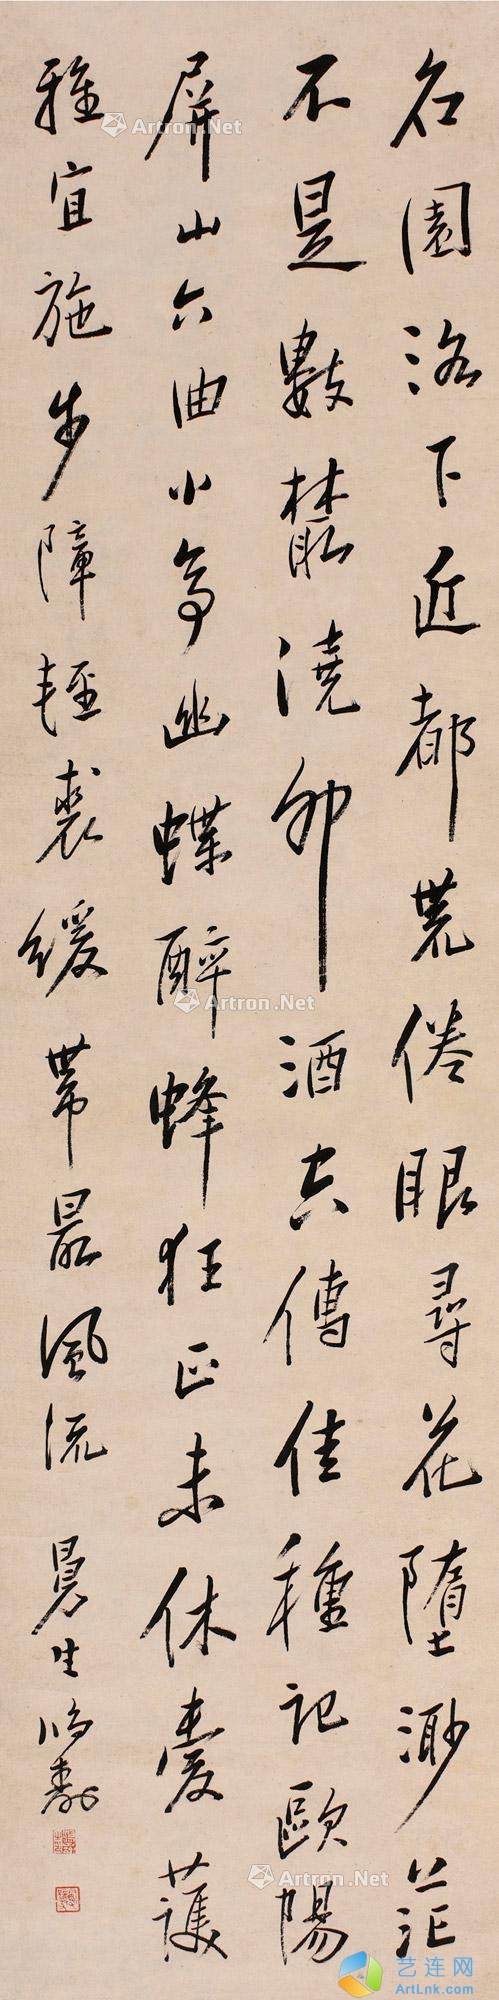 名園洛下近都荒倦眼尋花墮渺茫
不是數叢澆卯酒空傳佳種記歐陽
屏山六曲小亭幽蝶醉蜂狂正未休愛護
雅宜施步障輕裘緩帶最風流 曼生鴻壽
Artron.Net
Artron.Net
Artron.Net
Artron.Net
Artron.Net
艺连网
ArtLnk.com